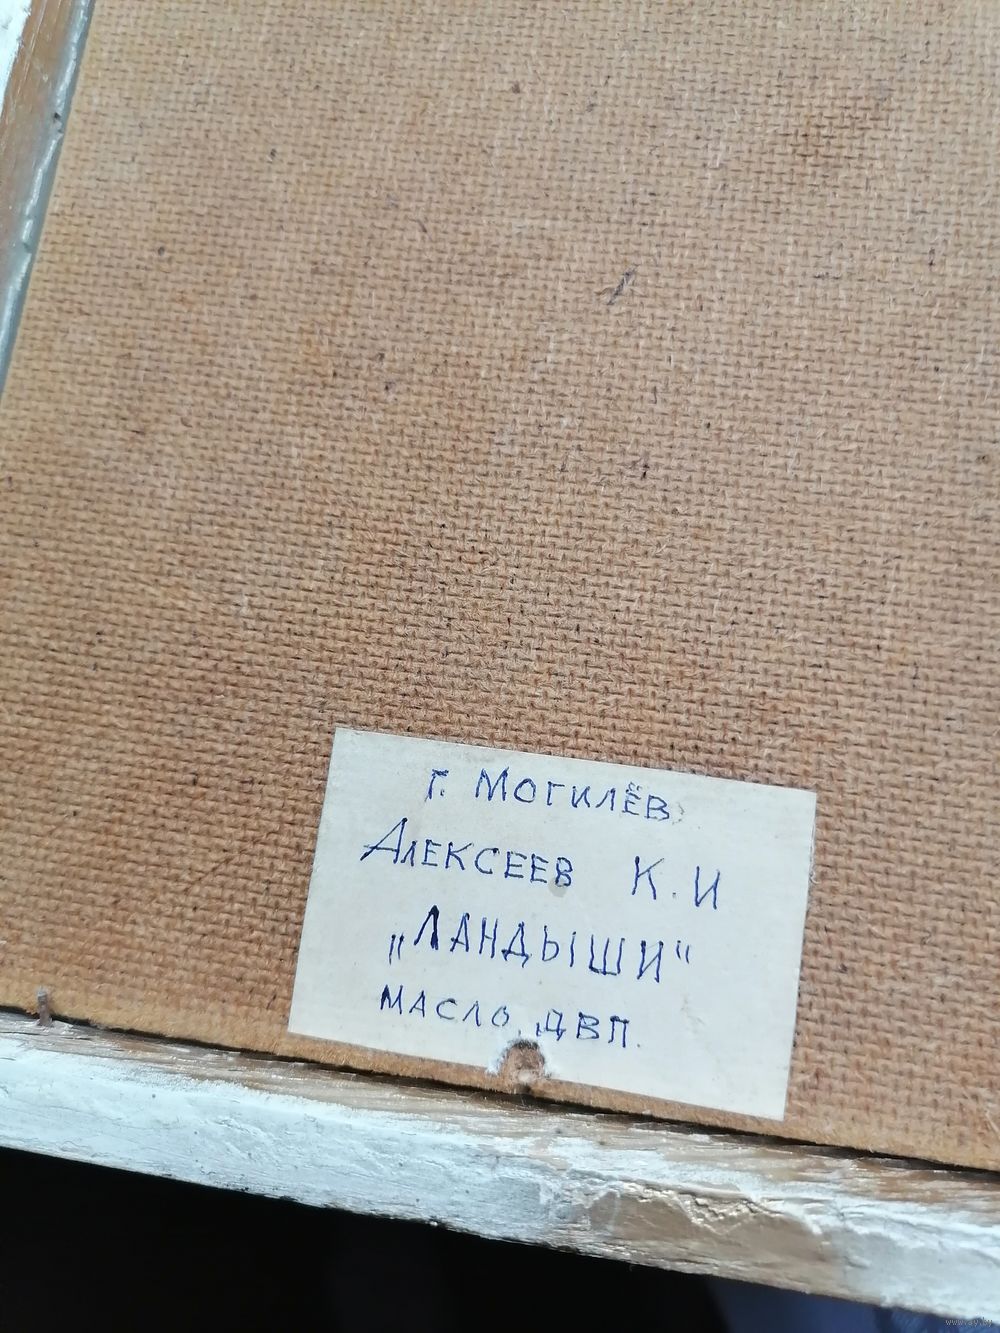 г. Могилёв
Алексеев К. И
„Ландыши"
масло, ДВП.
www.ay.by